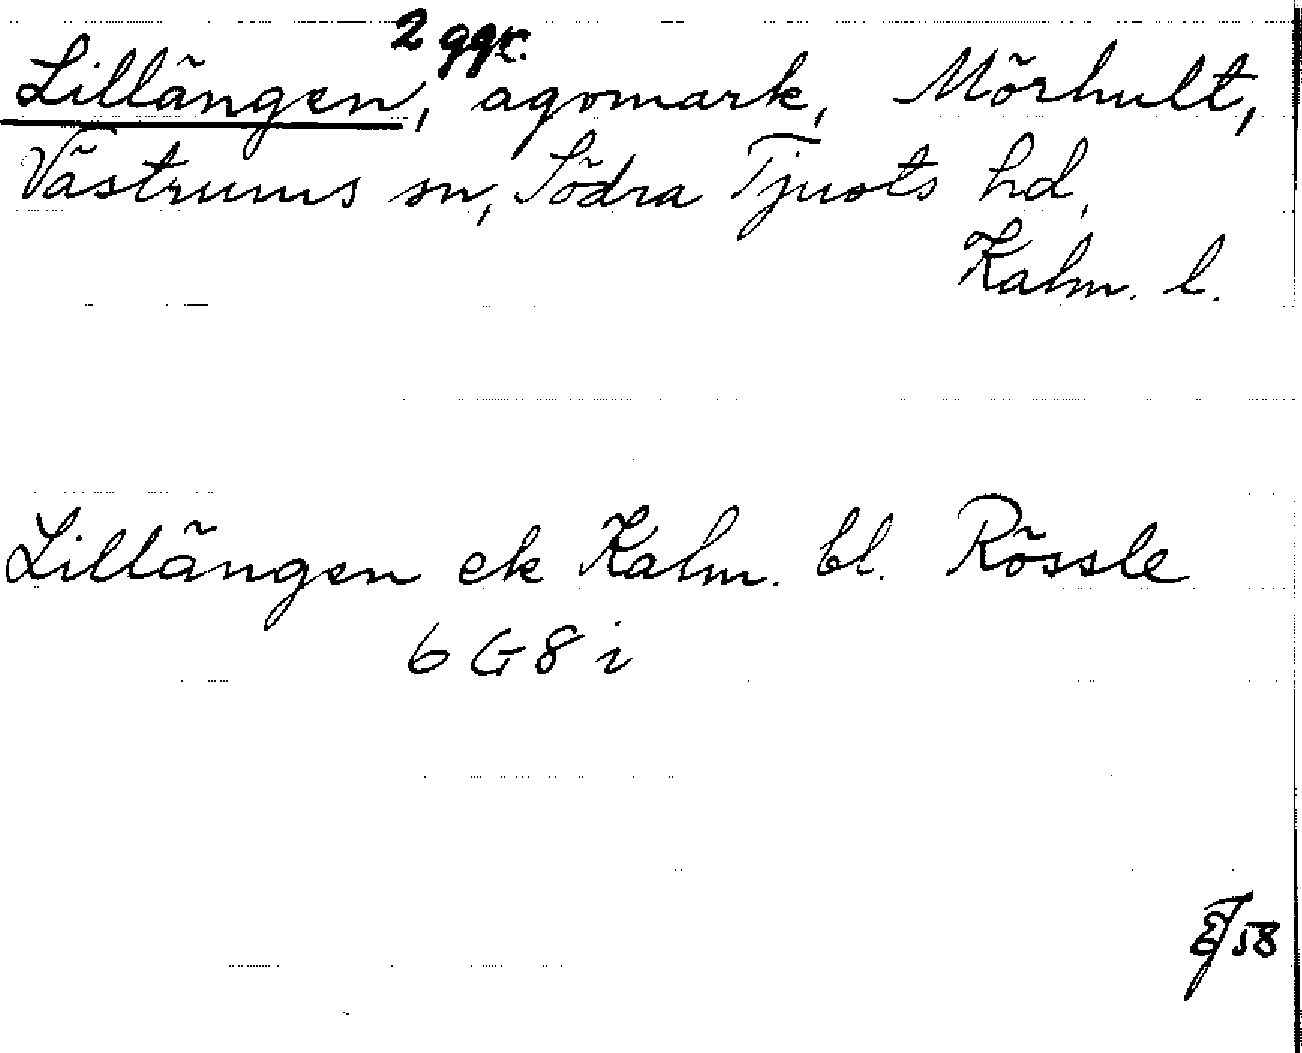 2 ggr.
Lillängen, ägomark, Mörhult,
Västrums sn, Södra Tjusts hd,
Kalm. l.
Lillängen ek Kalm. bl. Rössle
6 G 8 i
58